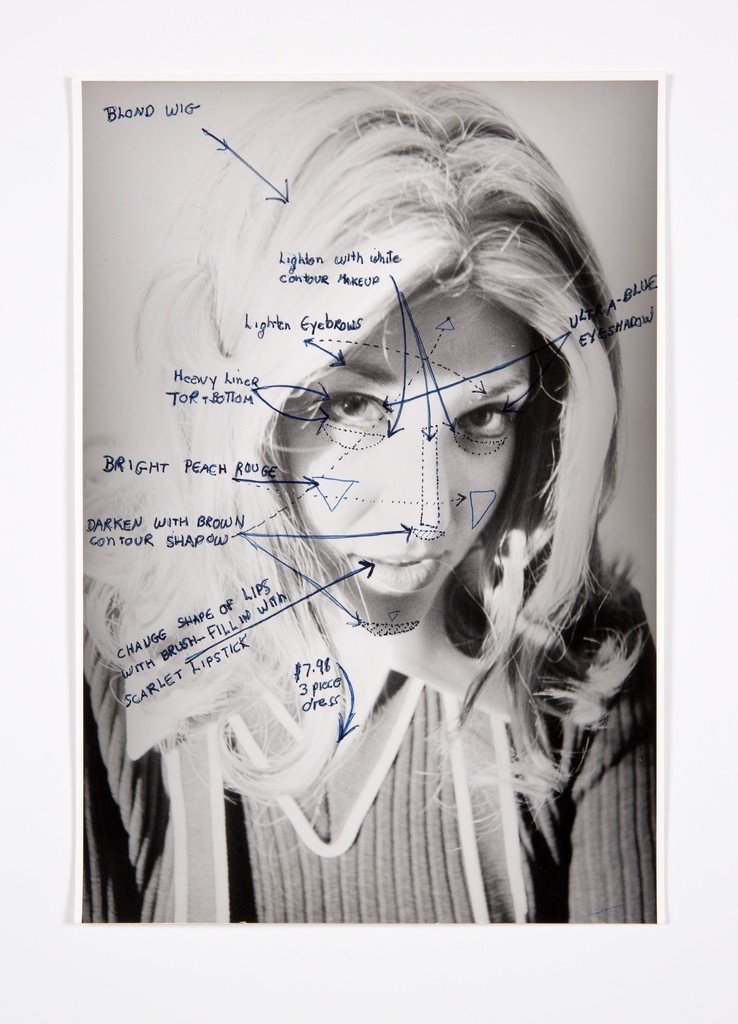 BLOND WIG
Lighten with white
contour MAKEUP
ULTRA-BLUE
EYESHADOW
Lighten Eyebrows
Heavy Liner
TOP + BOTTOM
BRIGHT PEACH ROUGE
DARKEN WITH BROWN
CONTOUR SHADOW
CHANGE SHAPE OF LIPS
WITH BRUSH-FILL IN WITH
SCARLET LIPSTICK
$7.98
3 piece
dress